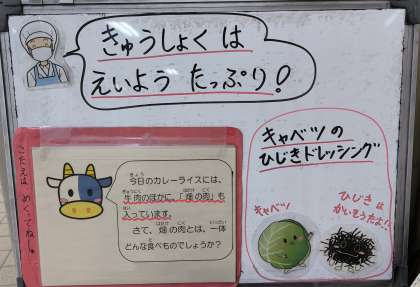 きゅうしょく は
えいよう たっぷり!
こたえは めくってね。
今日のカレーライスには、
牛肉のほかに、「畑の肉」も
入っています。
さて、畑の肉とは、一体
どんな食べものでしょうか?
キャベツの
ひじきドレッシング
キャベツ
ひじきは
かいそうだよ!!